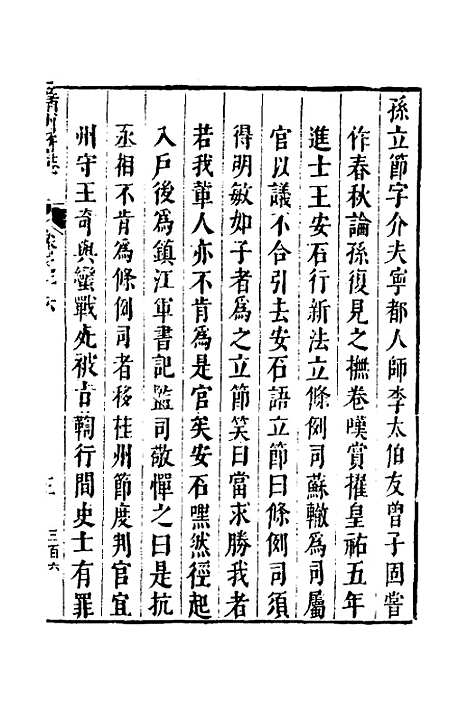 孫立節字介夫寧都人師李太伯友曾子固嘗
作春秋論孫復見之撫卷嘆賞擢皇祐五年
進士王安石行新法立條例司蘇轍爲司屬
官以議不合引去安石語立節曰條例司須
得明敏如子者爲之立節笑曰當求勝我者
若我軰人亦不肯爲是官矣安石嘿然徑起
入戶後爲鎮江軍書記監司敬憚之曰是抗
丞相不肯爲條例司者移桂州節度判官宜
州守王奇與蠻戰死被旨鞫行間吏士有罪
三百六